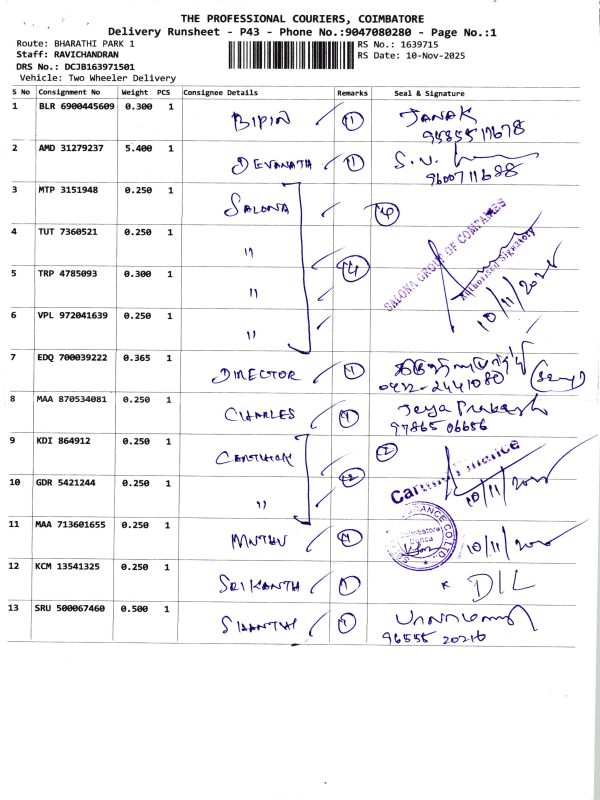 THE PROFESSIONAL COURIERS, COIMBATORE
Delivery Runsheet - P43 - Phone No.:9047080280 - Page No.:1
Route: BHARATHI PARK 1
RS No.: 1639715
Staff: RAVICHANDRAN
RS Date: 10-Nov-2025
DRS No.: DCJB163971501
Vehicle: Two Wheeler Delivery
S No Consignment No Weight PCS Consignee Details Remarks Seal & Signature
1 BLR 6900445609 0.300 1 BIPIN 1 JANAK
2 AMD 31279237 5.400 1 DEVANATH 1 S.V.
9600711688
3 MTP 3151948 0.250 1 SALONA 4
SALONA GROUP OF COMPANIES
Authorised Signatory
4 TUT 7360521 0.250 1 "
5 TRP 4785093 0.300 1 " 4
10/11/2025
6 VPL 972041639 0.250 1 "
7 EDQ 700039222 0.365 1 DIRECTOR 1
0422-2441080
8 MAA 870534081 0.250 1 CHARLES 1 Jeya Prakash
97865 06656
9 KDI 864912 0.250 1 2
10 GDR 5421244 0.250 1 " 2
10/11/2025
11 MAA 713601655 0.250 1 MUTHU 1
Coimbatore
10/11/2025
12 KCM 13541325 0.250 1 SRIKANTH 1 * D/L
13 SRU 500067460 0.500 1 SHANTHI 1
96555 20216